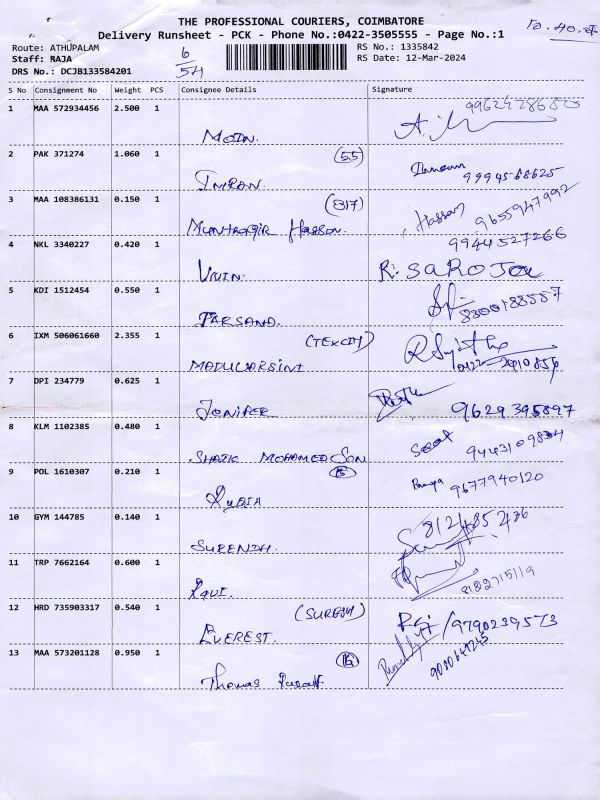 THE PROFESSIONAL COURIERS, COIMBATORE
Delivery Runsheet - PCK - Phone No.:0422-3505555 - Page No.:1
Route: ATHUPALAM RS No.: 1335842
Staff: RAJA 6/54 RS Date: 12-Mar-2024
DRS No.: DCJB133584201
S No Consignment No Weight PCS Consignee Details Signature
1 MAA 572934456 2.500 1
MOIN.
2 PAK 371274 1.060 1 (55)
IMRAN. 9994568625
3 MAA 108386131 0.150 1 (317) Hassan 9655947992
Hasson.
4 NKL 3340227 0.420 1 9944527266
R. SaROJa
5 KDI 1512454 0.550 1
FARSANA. 8300188557
6 IXM 506061660 2.355 1 (TEXCITY)
7 DPI 234779 0.625 1
JONIFER 9629395897
8 KLM 1102385 0.480 1
SHAIK MOHAMED SON
9 POL 1610307 0.210 1
RUBIA 9677940120
10 GYM 144785 0.140 1
SURENDH.
11 TRP 7662164 0.600 1
8182715119
12 HRD 735903317 0.540 1 (SURESH)
EVEREST. /9790239573
13 MAA 573201128 0.950 1
Thomas